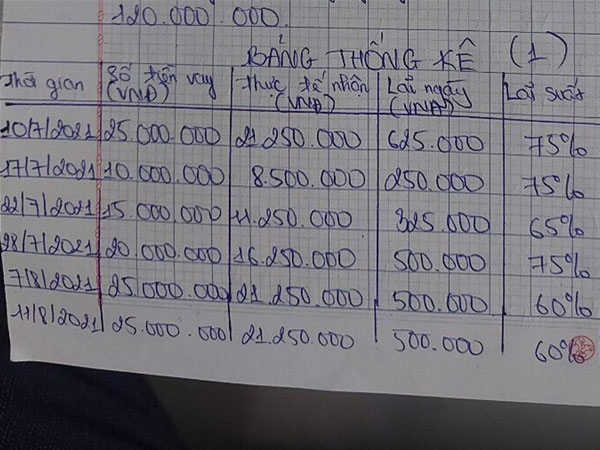 120.000.000.
BẢNG THỐNG KÊ (1)
Thời gian Số tiền vay (VNĐ) Thực tế nhận (VNĐ) Lãi ngày (VNĐ) Lãi suất
10/7/2021 25.000.000 21.250.000 625.000 75%
17/7/2021 10.000.000 8.500.000 250.000 75%
22/7/2021 15.000.000 11.250.000 325.000 65%
28/7/2021 20.000.000 16.250.000 500.000 75%
7/8/2021 25.000.000 21.250.000 500.000 60%
11/8/2021 25.000.000 21.250.000 500.000 60%